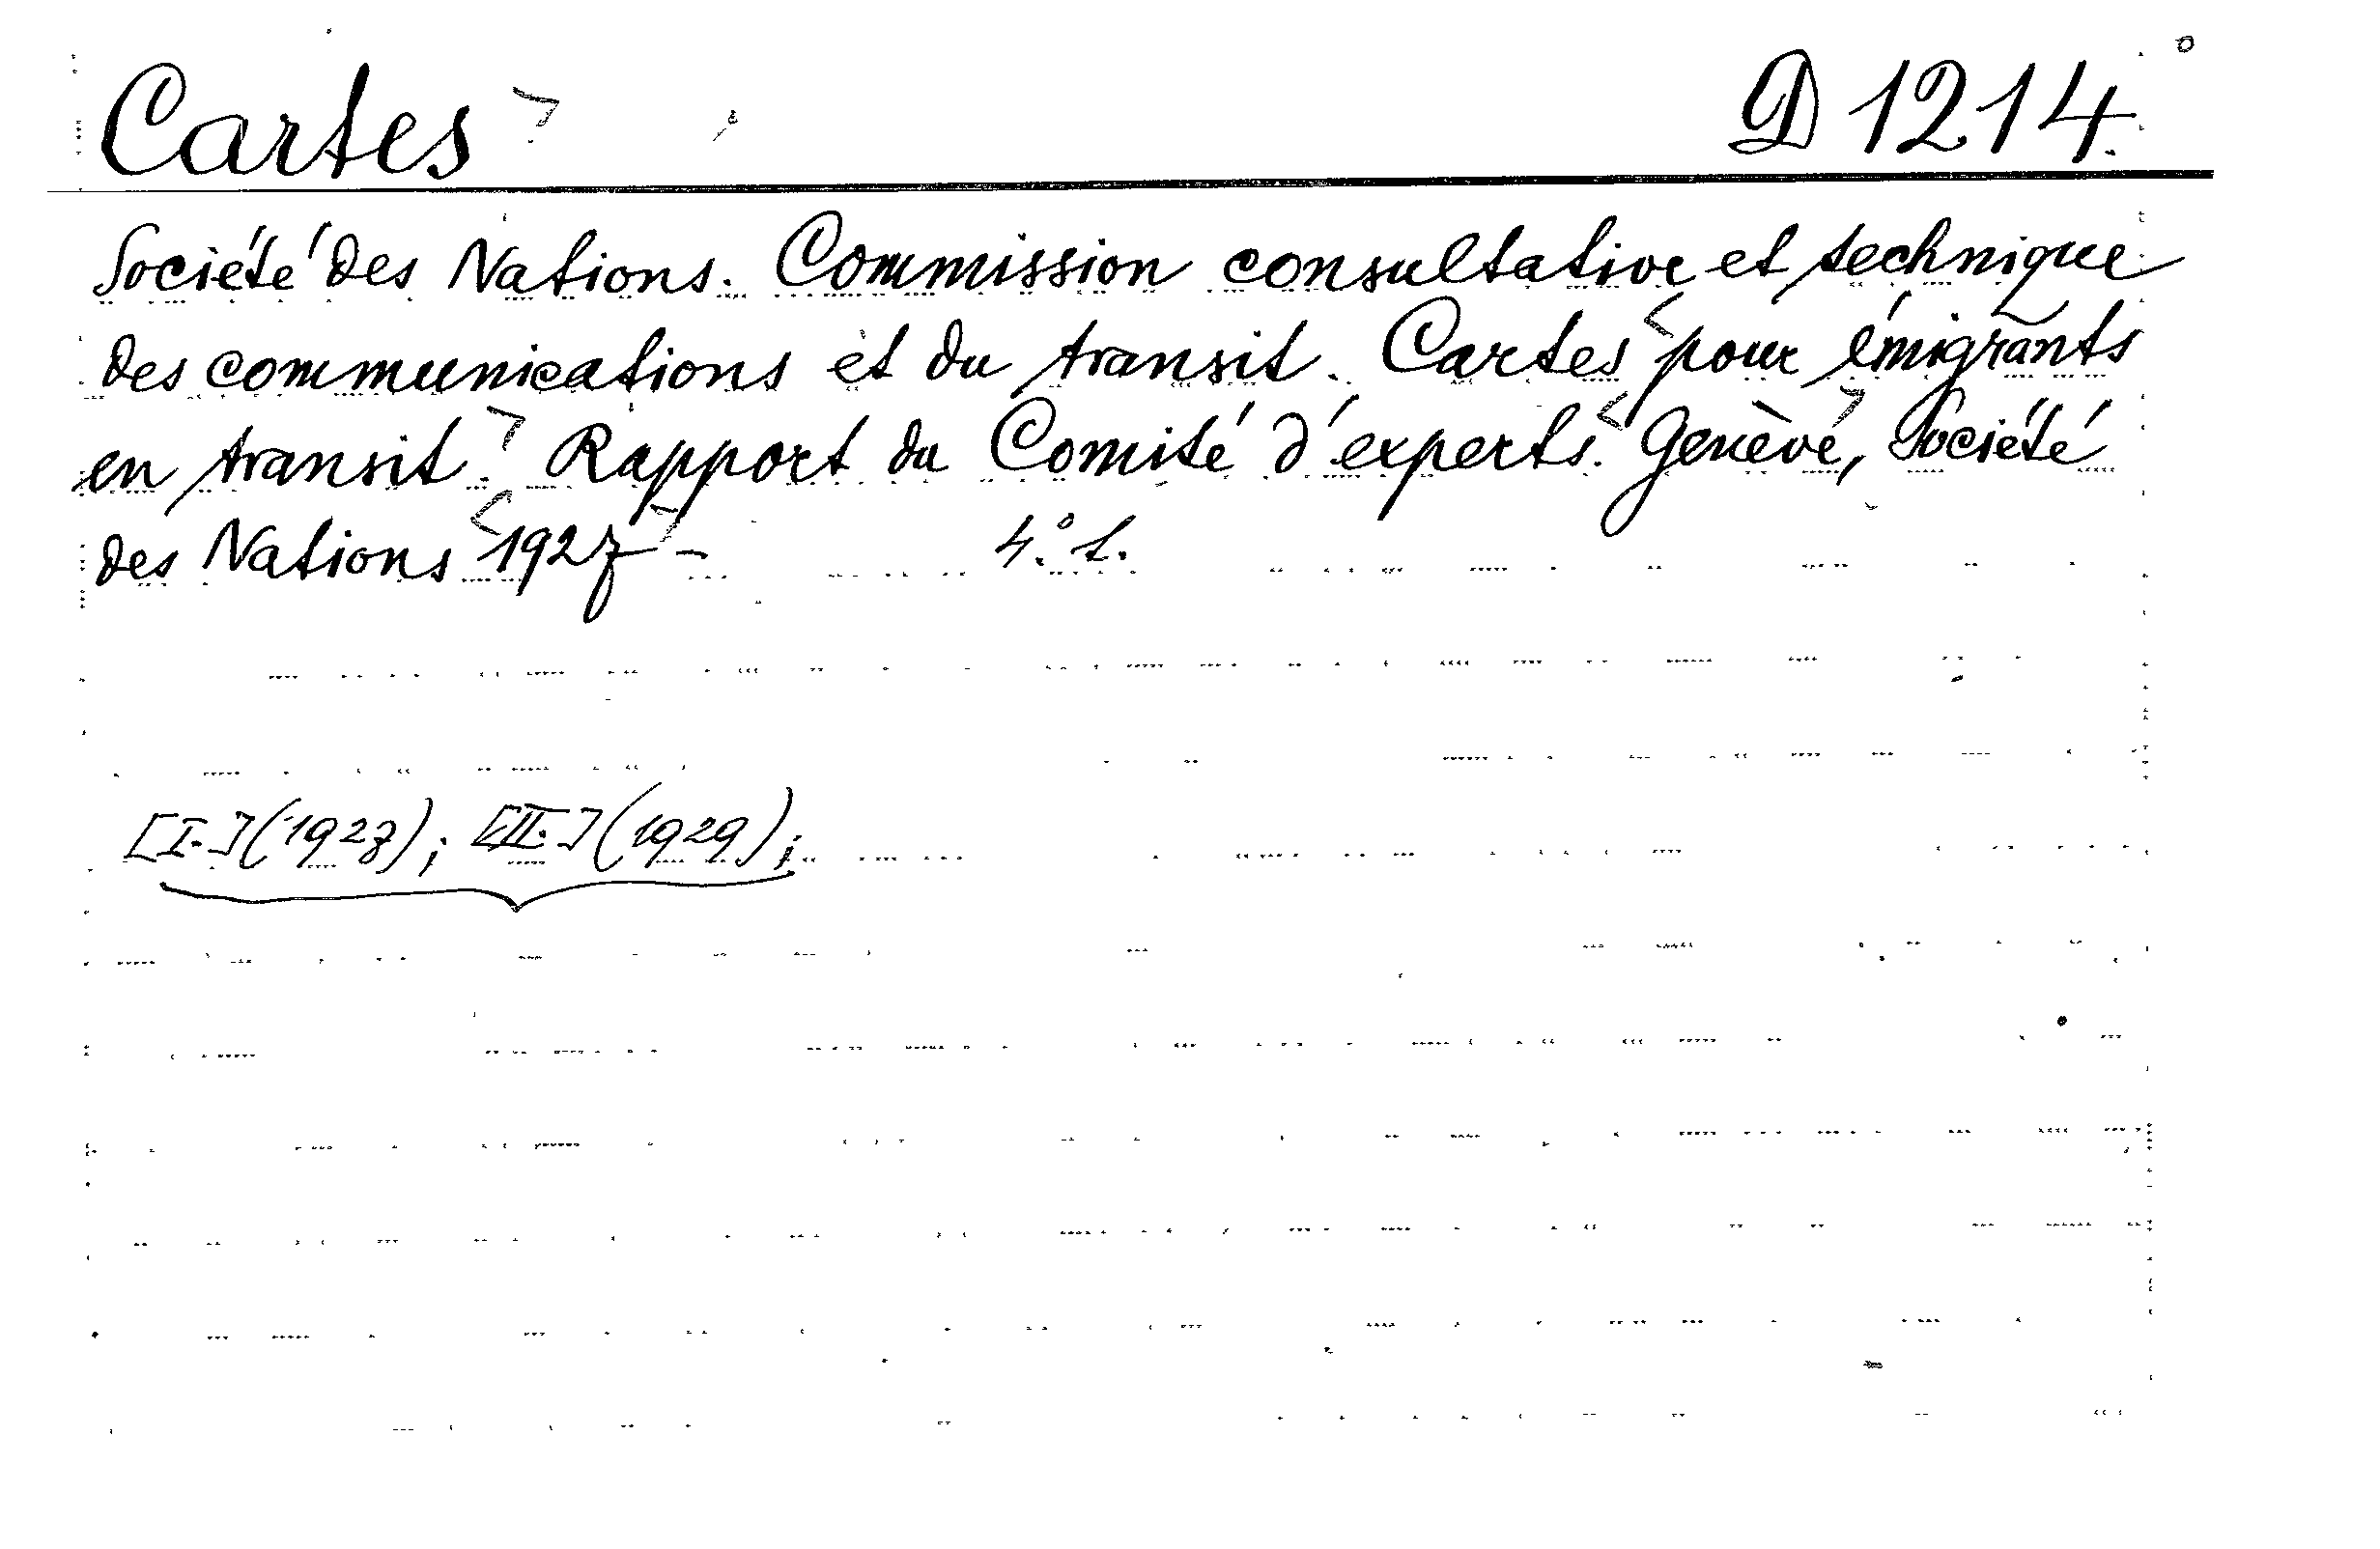 Cartes D 1214.
Société des Nations. Commission consultative et technique
des communications et du transit. Cartes pour émigrants
en transit. Rapport du Comité d'experts. Genève, Société
des Nations 1927 -
4.° t.
[I.] (1927); [II.] (1929);